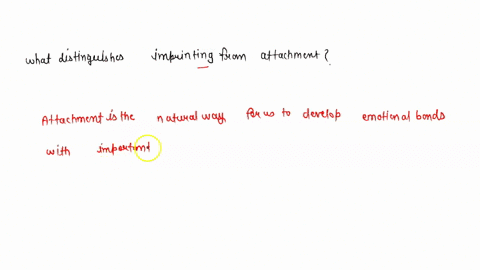 what distinguishes imprinting from attachment?
Attachment is the natural way for us to develop emotional bonds
with important